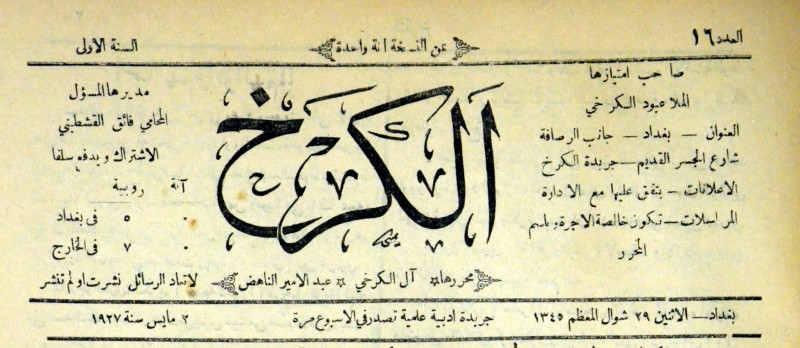 العدد ١٦
ثمن النسخة آنة واحدة
السنة الاولى
صاحب امتيازها
الملا عبود الكرخي
العنوان – بغداد – جانب الرصافة
شارع الجسر القديم – جريدة الكرخ
الاعلانات – يتفق عليها مع الادارة
المراسلات – تكون خالصة الاجرة وباسم
المحرر
الكرخ
محررها
آل الكرخي
عبد الامير الناهض
مديرها المسؤل
المحامي فائق القشطيني
الاشتراك ويدفع سلفا
آنة روبية
٠ ٥ في بغداد
٠ ٧ في الخارج
لا تعاد الرسائل نشرت او لم تنشر
بغداد – الاثنين ٢٩ شوال المعظم ١٣٤٥
جريدة ادبية علمية تصدر في الاسبوع مرة
٢ مايس سنة ١٩٢٧